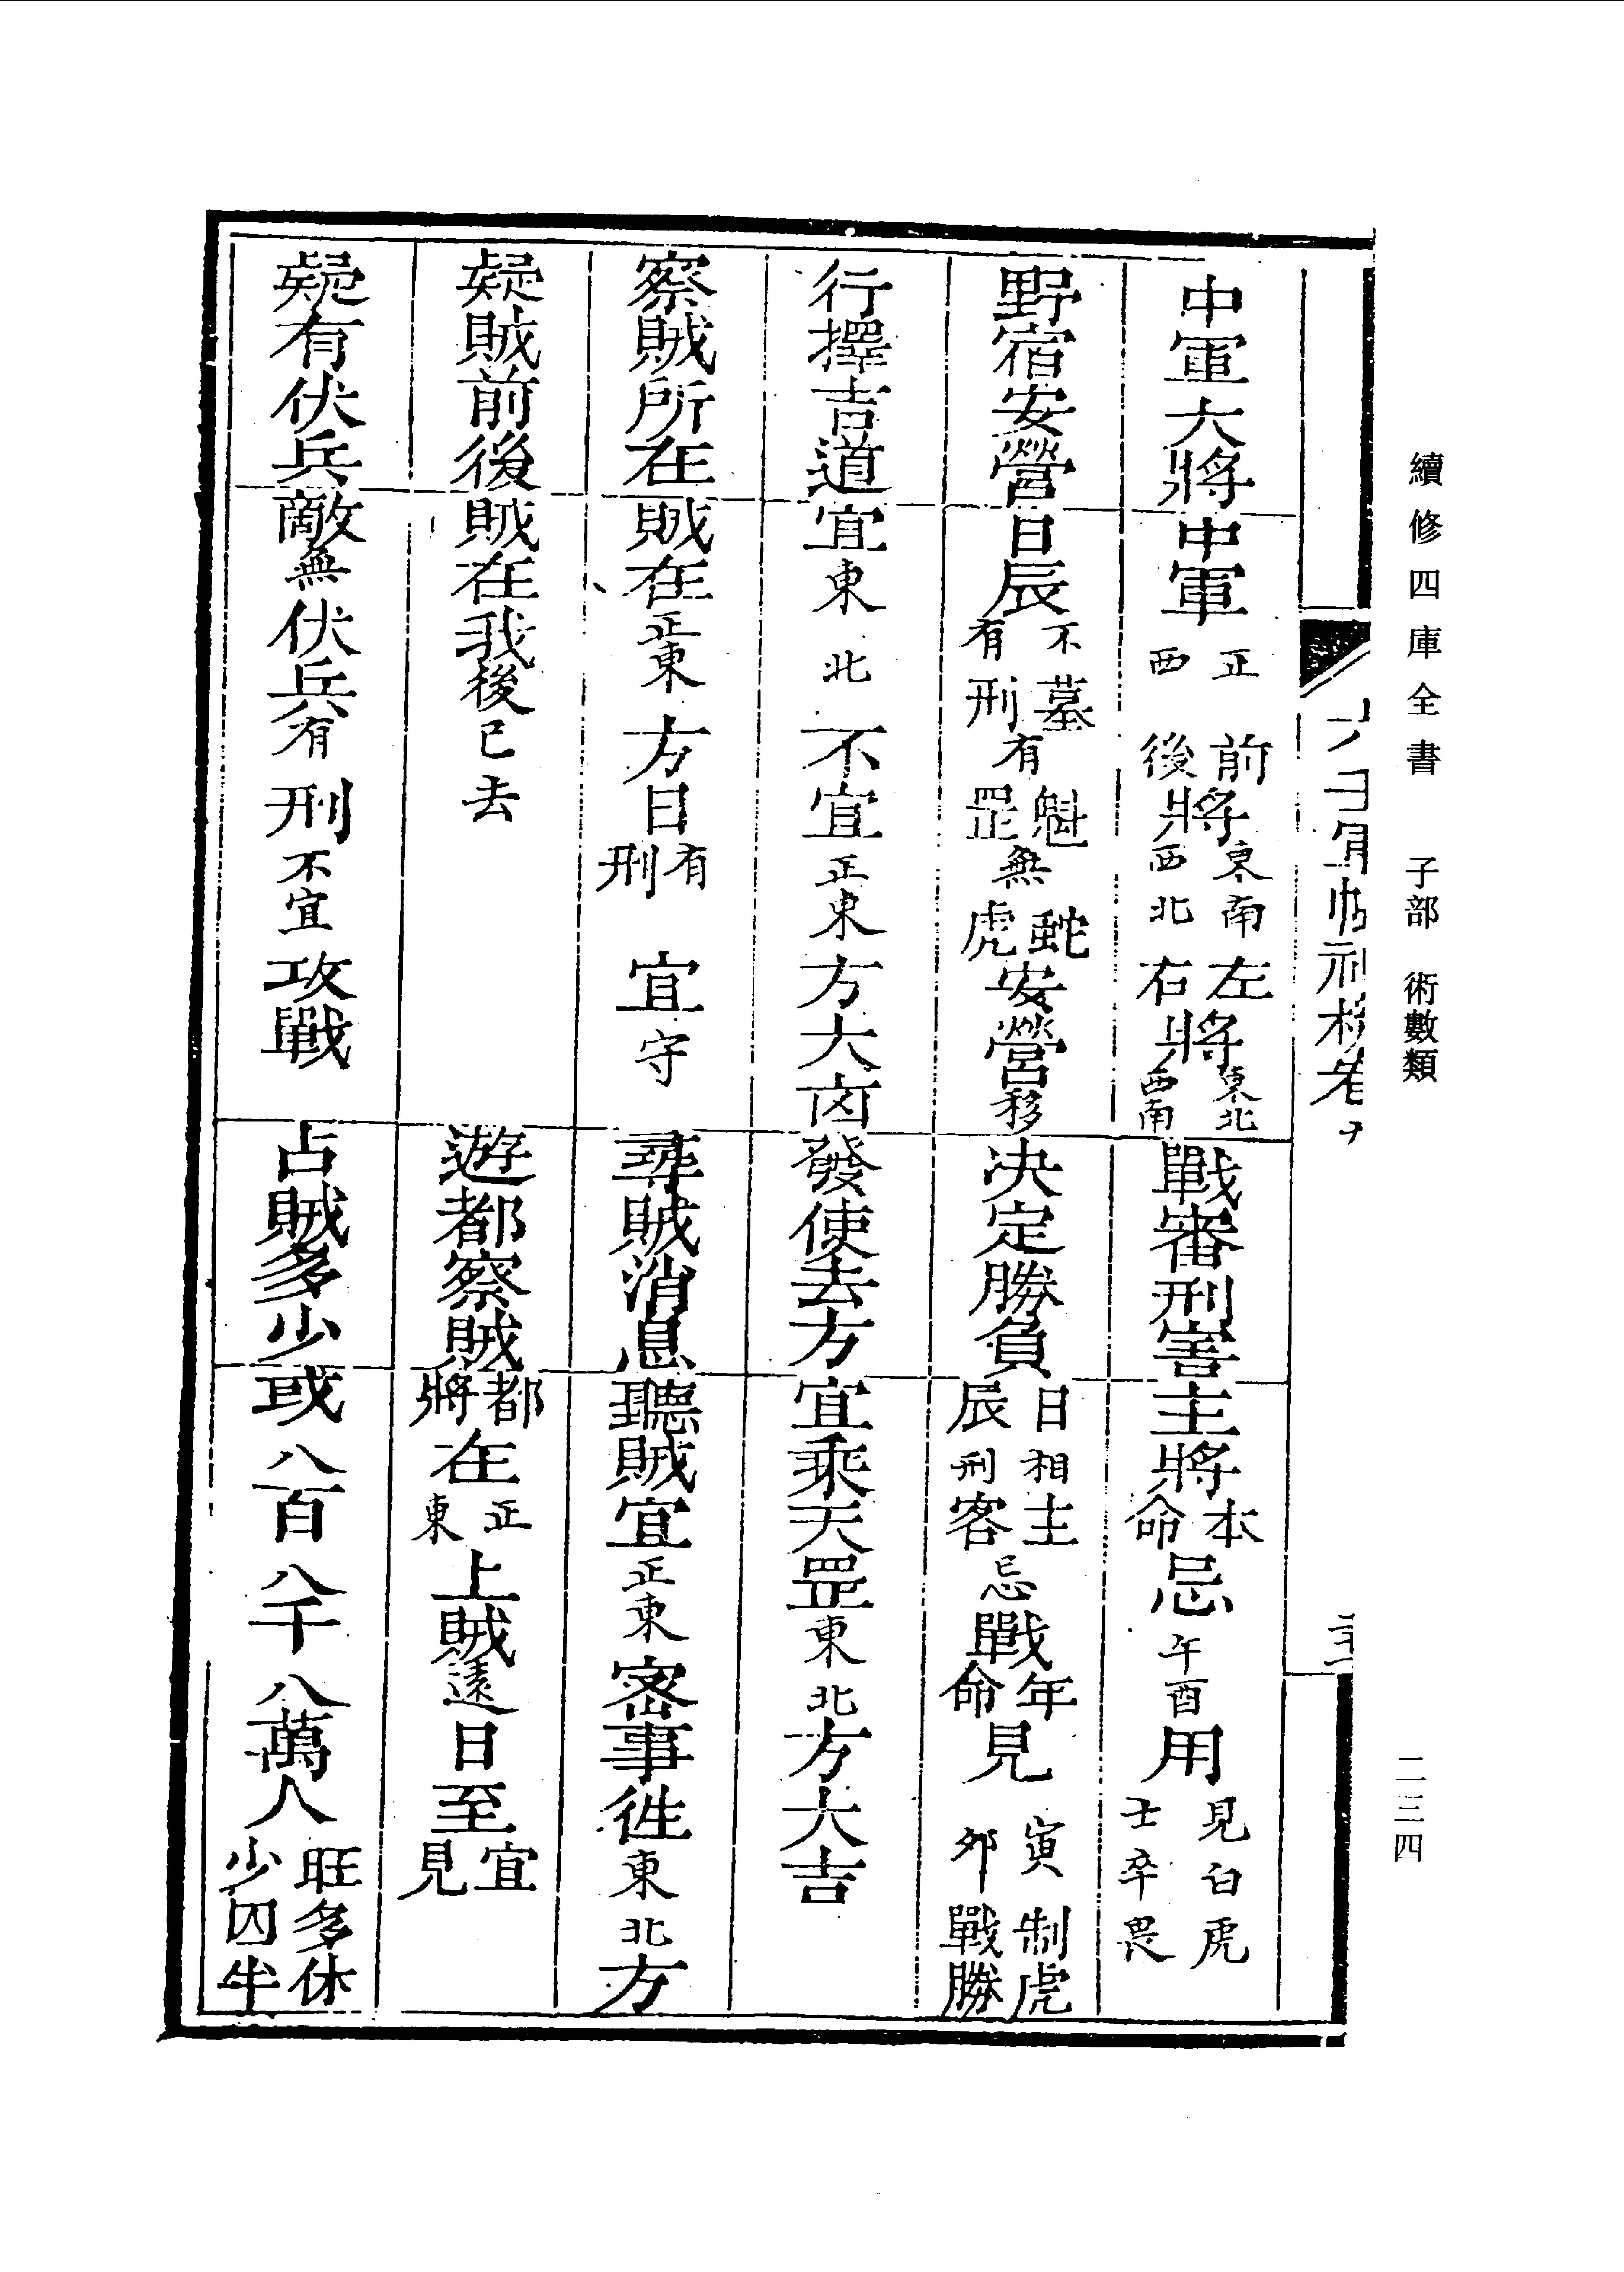 續修四庫全書 子部 術數類
二三四
中軍大將 中軍正西 前後將東南西北 左右將東北西南 戰審刑害 主將本命忌午酉用見白虎士卒畏
野宿安營 日辰不墓有刑有魁罡無蛇虎安營移 決定勝負 日辰相刑主客忌戰年命見寅卯制虎戰勝
行擇吉道 宜東北不宜正東方大凶 發使去方 宜乘天罡東北方大吉
察賊所在 賊在正東方日有刑宜守 尋賊消息 聽賊宜正東密事徃東北方
疑賊前後 賊在我後已去 遊都察賊 都將在正東上賊遠日至宜見
疑有伏兵 敵無伏兵有刑不宜攻戰 占賊多少 或八百八千八萬人旺多休少囚半